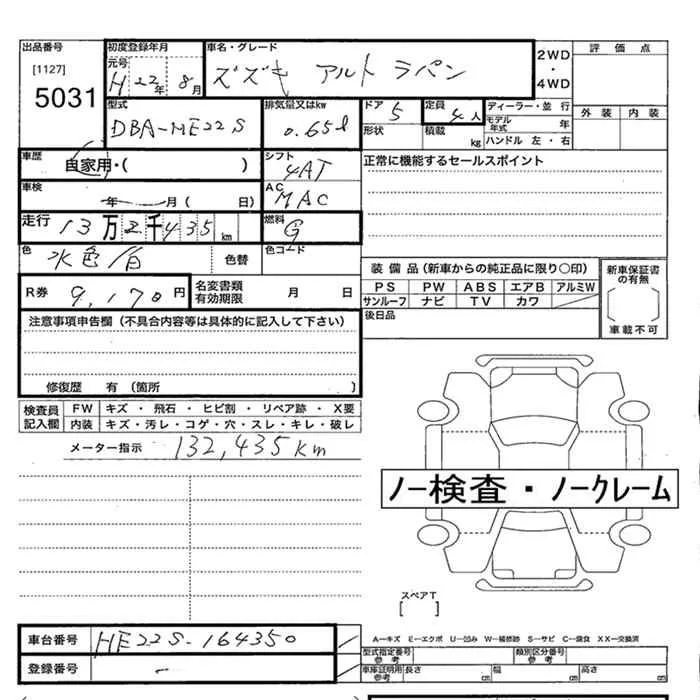 出品番号 初度登録年月 車名・グレード 2WD・4WD 評価点
[1127] 元号 H 22年 8月 スズキ アルト ラパン
5031 外装 内装
型式 DBA-HE22S 排気量又はkw 0.65ℓ ドア 5 定員 4人 ディーラー・並行
形状 積載 kg モデル年式 年 ハンドル 左・右
車歴 自家用・( ) シフト 4AT 正常に機能するセールスポイント
車検 年 月( 日) AC MAC
走行 13万2千435km 燃料 G
色 水色/白 色替 色コード
装備品(新車からの純正品に限り○印) 新車保証書の有無
R券 9,170円 名変書類有効期限 月 日 PS PW ABS エアB アルミW
サンルーフ ナビ TV カワ
注意事項申告欄(不具合内容等は具体的に記入して下さい) 後日品 車載不可
修復歴 有(箇所 )
検査員記入欄 FW キズ・飛石・ヒビ割・リペア跡・X要
内装 キズ・汚レ・コゲ・穴・スレ・キレ・破レ
メーター指示 132,435km
ノー検査・ノークレーム
スペアT
[ ]
車台番号 HE22S-164350 A-キズ E-エクボ U-凹み W-補修跡 S-サビ C-腐食 XX-交換済
型式指定番号 参考 類別区分番号 参考
登録番号 - 車庫証明用 参考 長さ cm 幅 cm 高さ cm